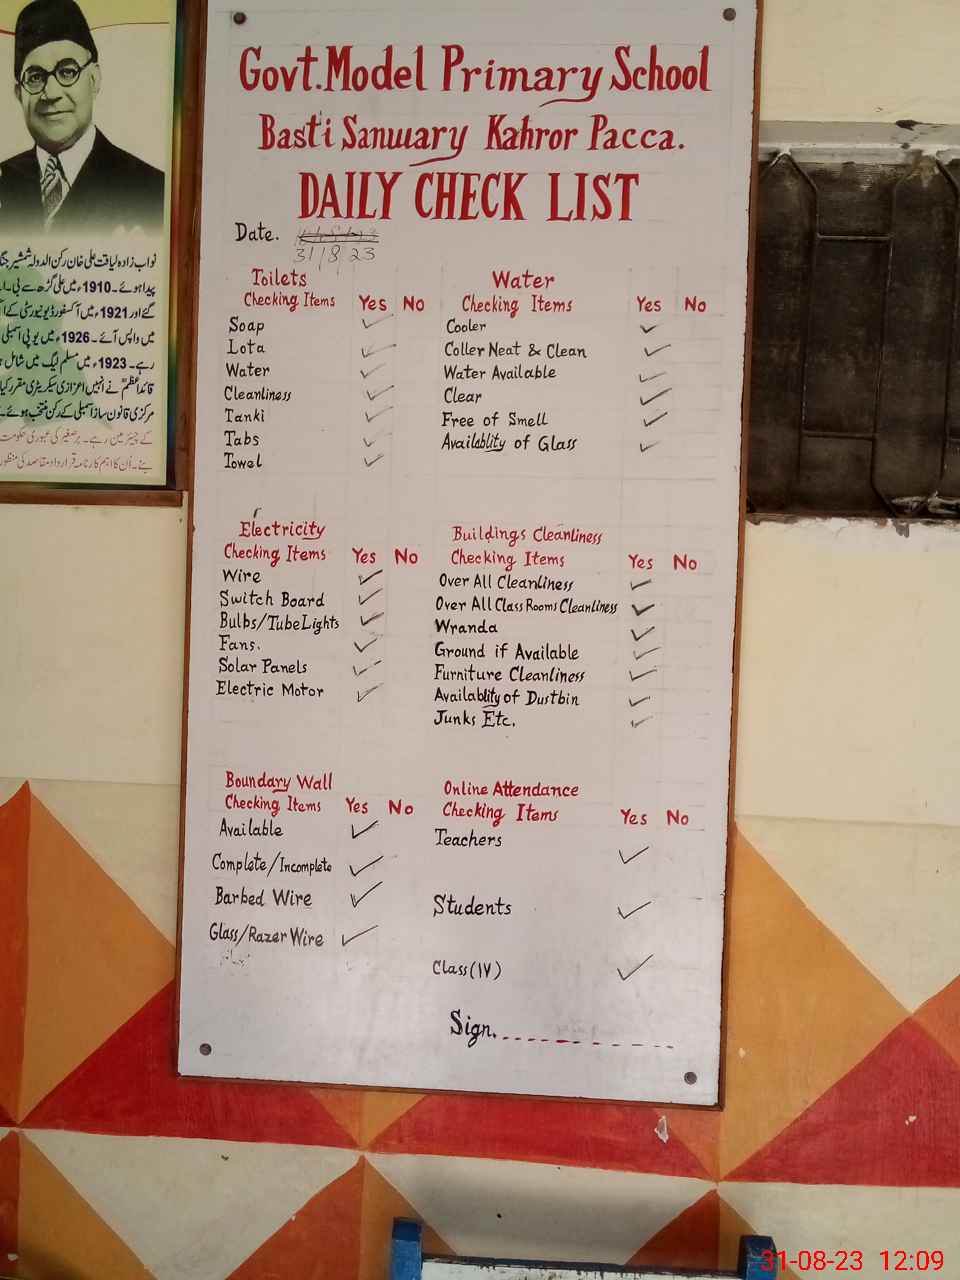 Govt. Model Primary School
Basti Sanwary Kahror Pacca.
DAILY CHECK LIST
Date.
31/8/23
Toilets
Checking Items Yes No
Soap ✓
Lota ✓
Water ✓
Cleanliness ✓
Tanki ✓
Tabs ✓
Towel ✓
Water
Checking Items Yes No
Cooler ✓
Coller Neat & Clean ✓
Water Available ✓
Clear ✓
Free of Smell ✓
Availablity of Glass ✓
Electricity
Checking Items Yes No
Wire ✓
Switch Board ✓
Bulbs/Tube Lights ✓
Fans. ✓
Solar Panels ✓
Electric Motor ✓
Buildings Cleanliness
Checking Items Yes No
Over All Cleanliness ✓
Over All Class Rooms Cleanliness ✓
Wranda ✓
Ground if Available ✓
Furniture Cleanliness ✓
Availablity of Dustbin ✓
Junks Etc. ✓
Boundary Wall
Checking Items Yes No
Available ✓
Complete/Incomplete ✓
Barbed Wire ✓
Glass/Razer Wire ✓
Online Attendance
Checking Items Yes No
Teachers ✓
Students ✓
Class (IV) ✓
Sign.
نواب زادہ لیاقت علی خان رکن الدولہ شمشیر جنگ
پیدا ہوئے۔ 1910ء میں علی گڑھ سے بی۔
گئے اور 1921ء میں آکسفورڈ یونیورسٹی کے
میں واپس آئے۔ 1926ء میں یو پی اسمبلی
رہے۔ 1923ء میں مسلم لیگ میں شامل
قائداعظمؒ نے انہیں اعزازی سیکریٹری مقرر کیا
مرکزی قانون ساز اسمبلی کے رکن منتخب ہوئے۔
کے چیئرمین رہے۔ برصغیر کی عبوری حکومت
بنے۔ اُن کا اہم کارنامہ قرارداد مقاصد کی منظور
31-08-23 12:09